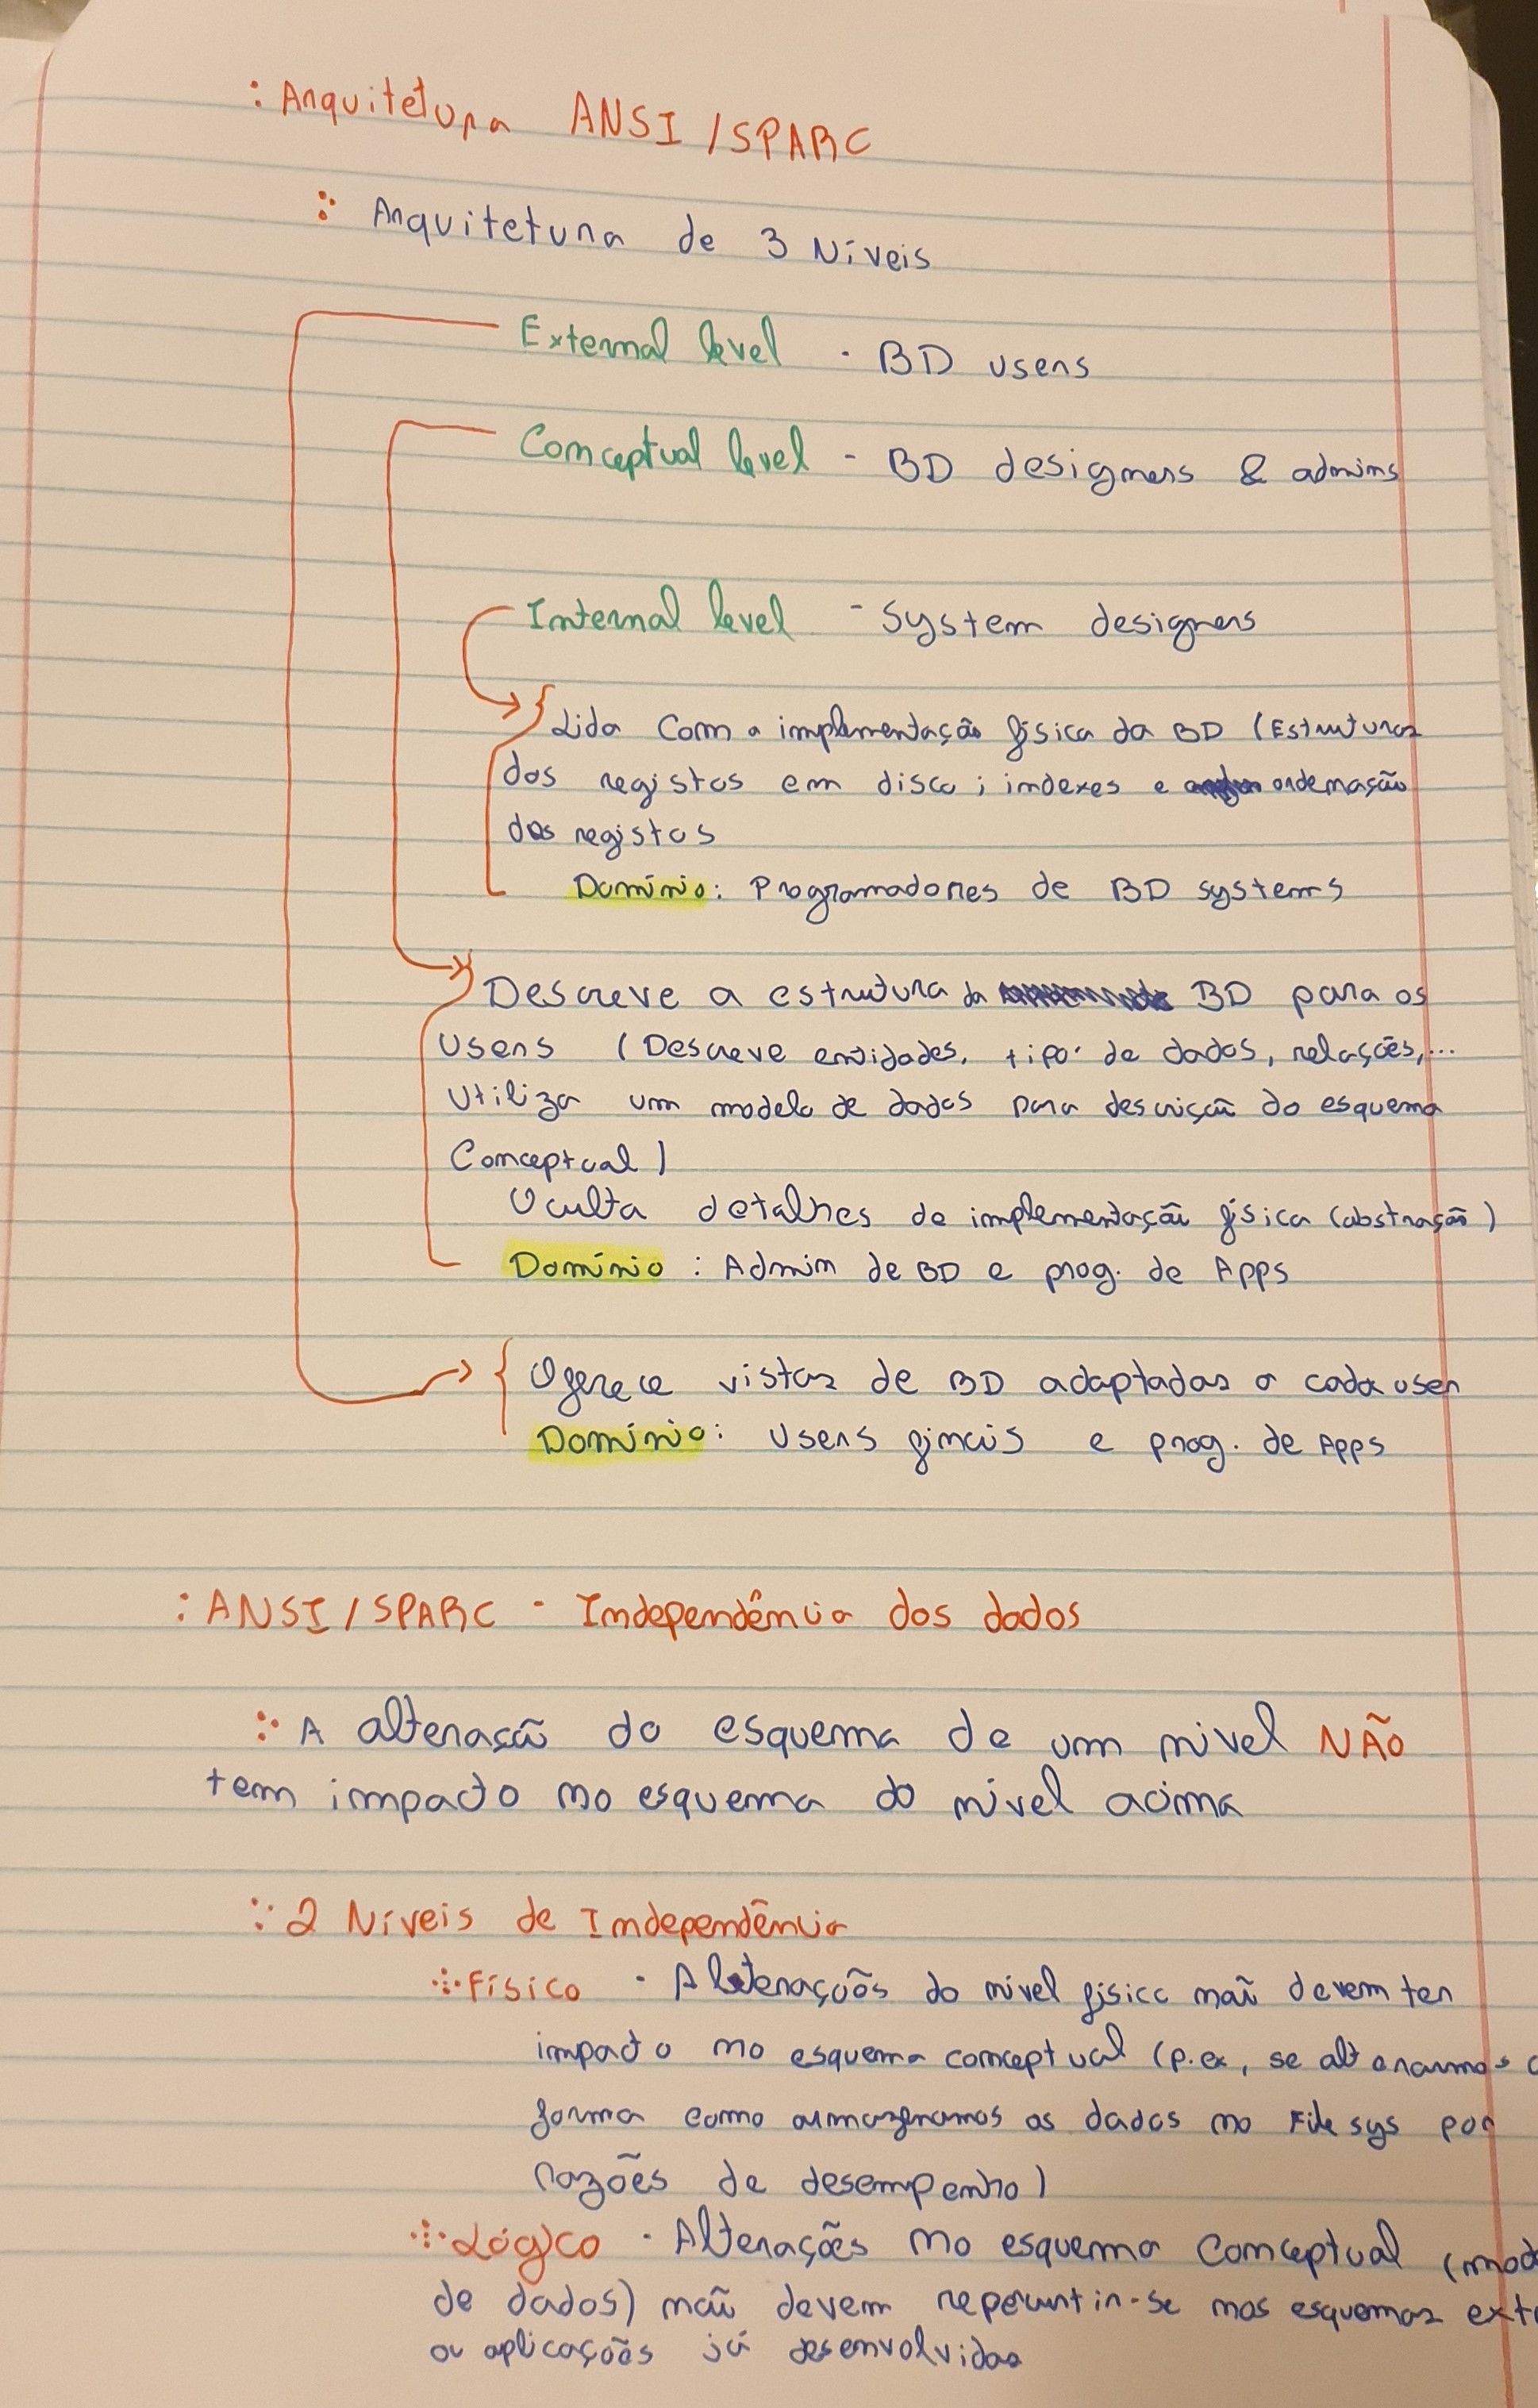 : Arquitetura ANSI/SPARC
:· Arquitetura de 3 Níveis
External level · BD users
Conceptual level - BD designers & admins
Internal level - System designers
Lida com a implementação física da BD (Estruturas
dos registos em disco; indexes e ordenação
dos registos
Domínio: Programadores de BD systems
Descreve a estrutura da BD para os
users (Descreve entidades, tipo de dados, relações,...
Utiliza um modelo de dados para descrição do esquema
Conceptual)
Oculta detalhes de implementação física (abstração)
Domínio : Admin de BD e prog. de Apps
Oferece vistas de BD adaptadas a cada user
Domínio: Users finais e prog. de Apps
: ANSI/SPARC - Independência dos dados
:· A alteração do esquema de um nível NÃO
tem impacto no esquema do nível acima
:· 2 Níveis de Independência
Físico · Alterações do nível físico não devem ter
impacto no esquema conceptual (p.ex, se alterarmos
forma como armazenamos os dados no File sys por
razões de desempenho)
Lógico · Alterações no esquema Conceptual (mod
de dados) não devem repercutir-se nos esquemas ext
ou aplicações já desenvolvidas